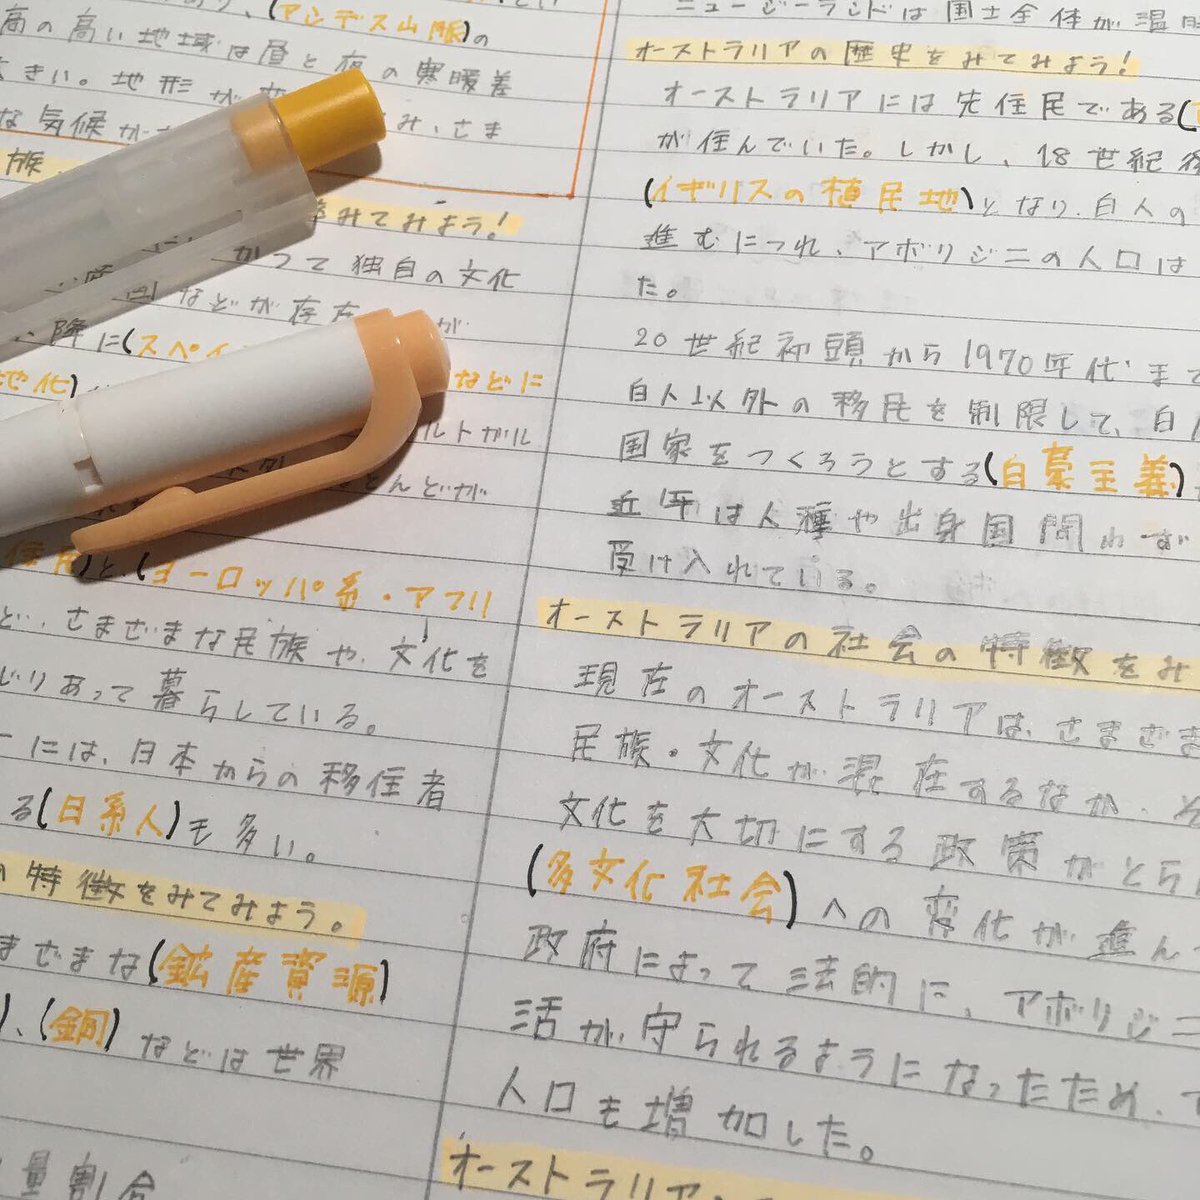 (アンデス山脈)の
高の高い地域は昼と夜の寒暖差
きい。地形が
な気候が み、さま
族
みてみよう!
かつて独自の文化
などが存在 が
降に(スペイ
地化) などに
ルトガル
とんどが
住民)と(ヨーロッパ系・アフリ
ど、さまざまな民族や、文化を
じりあって暮らしている。
ーには、日本からの移住者
る(日系人)も多い。
の特徴をみてみよう。
まざまな(鉱産資源)
)、(銅)などは世界
量割合
ニュージーランドは国土全体が温
オーストラリアの歴史をみてみよう!
オーストラリアには先住民である(
が住んでいた。しかし、18世紀後
(イギリスの植民地)となり、白人の
進むにつれ、アボリジニの人口は
た。
20世紀初頭から1970年代まで
白人以外の移民を制限して、白
国家をつくろうとする(白豪主義)
近年は人種や出身国問わず
受け入れている。
オーストラリアの社会の特徴をみ
現在のオーストラリアは、さまざま
民族・文化が混在するなか、そ
文化を大切にする政策がとら
(多文化社会)への変化が進ん
政府によって法的に、アボリジニ
活が守られるようになったため、
人口も増加した。
オーストラリア